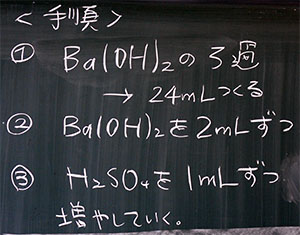 <手順>
① Ba(OH)₂のろ過
→ 24mLつくる
② Ba(OH)₂を2mLずつ
③ H₂SO₄を1mLずつ
増やしていく。